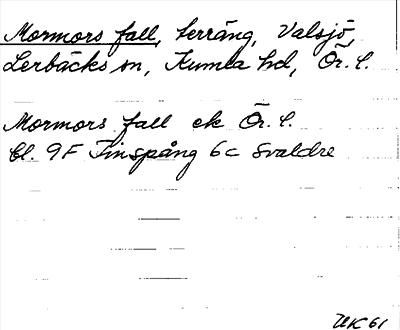 Mormors fall, terräng, Valsjö,
Lerbäcks sn, Kumla hd, Ör. l.
Mormors fall ek Ör. l.
bl. 9F Finspång 6c Svaldre
UK 61